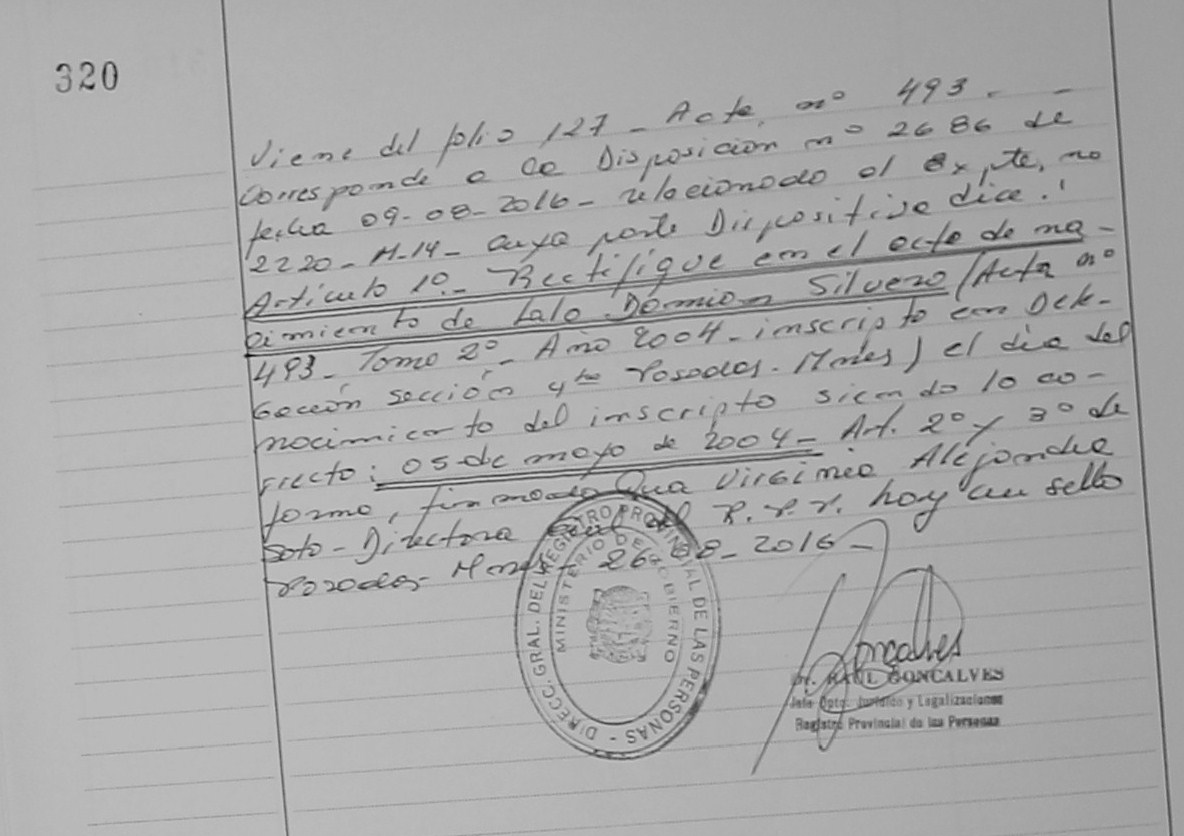 320
Viene del folio 127 - Acta nº 493. -
Corresponde a la Disposición nº 2686 de
fecha 09-08-2016 - relacionado al Expte, no
2220 - H-14 - cuya parte Dispositiva dice:
Artículo 1º.- Rectifique en el acta de na-
cimiento de Lalo Domion Silvero (Acta nº
493 - Tomo 2º - Año 2004 - inscripto en Dele-
gación sección 4ta Posadas. Mnes) el día del
nacimiento del inscripto siendo lo co-
rrecto: 05 de mayo de 2004 - Art. 2º y 3º de
forma, firmado Virginia Alejandra
Soto - Directora Gral del R.P.P. hoy un sello
Posadas Mnes - 26-08-2016 -
DIRECC. GRAL. DEL REGISTRO PROVINCIAL DE LAS PERSONAS -
MINISTERIO DE GOBIERNO
Goncalves
Dr. RAUL GONCALVES
Jefe Dpto. Jurídico y Legalizaciones
Registro Provincial de las Personas